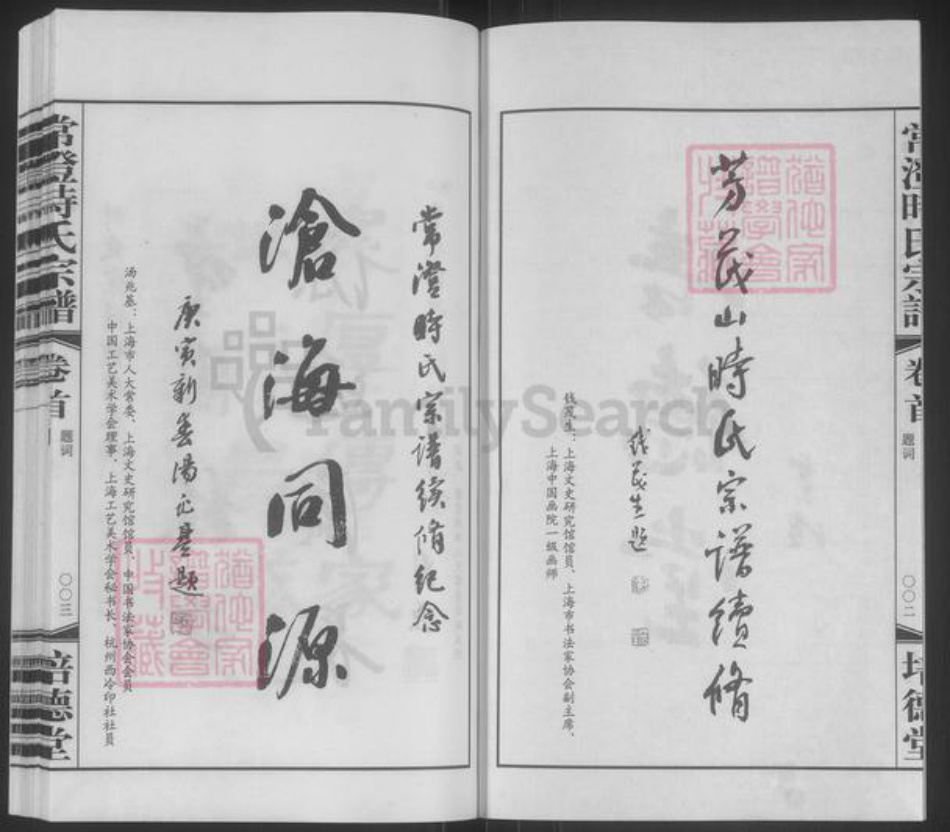 常澄時氏宗譜
卷首
题词
〇〇二
培德堂
芳茂山時氏宗譜續脩
钱茂生題
钱茂生：上海文史研究馆馆员、上海市书法家协会副主席、
上海中国画院一级画师
常澄時氏宗譜續脩纪念
滄海同源
庚寅新春湯兆基題
汤兆基：上海市人大常委、上海文史研究馆馆员、中国书法家协会会员
中国工艺美术学会理事、上海工艺美术学会秘书长、杭州西冷印社社員
常澄時氏宗譜
卷首
题词
〇〇三
培德堂
FamilySearch